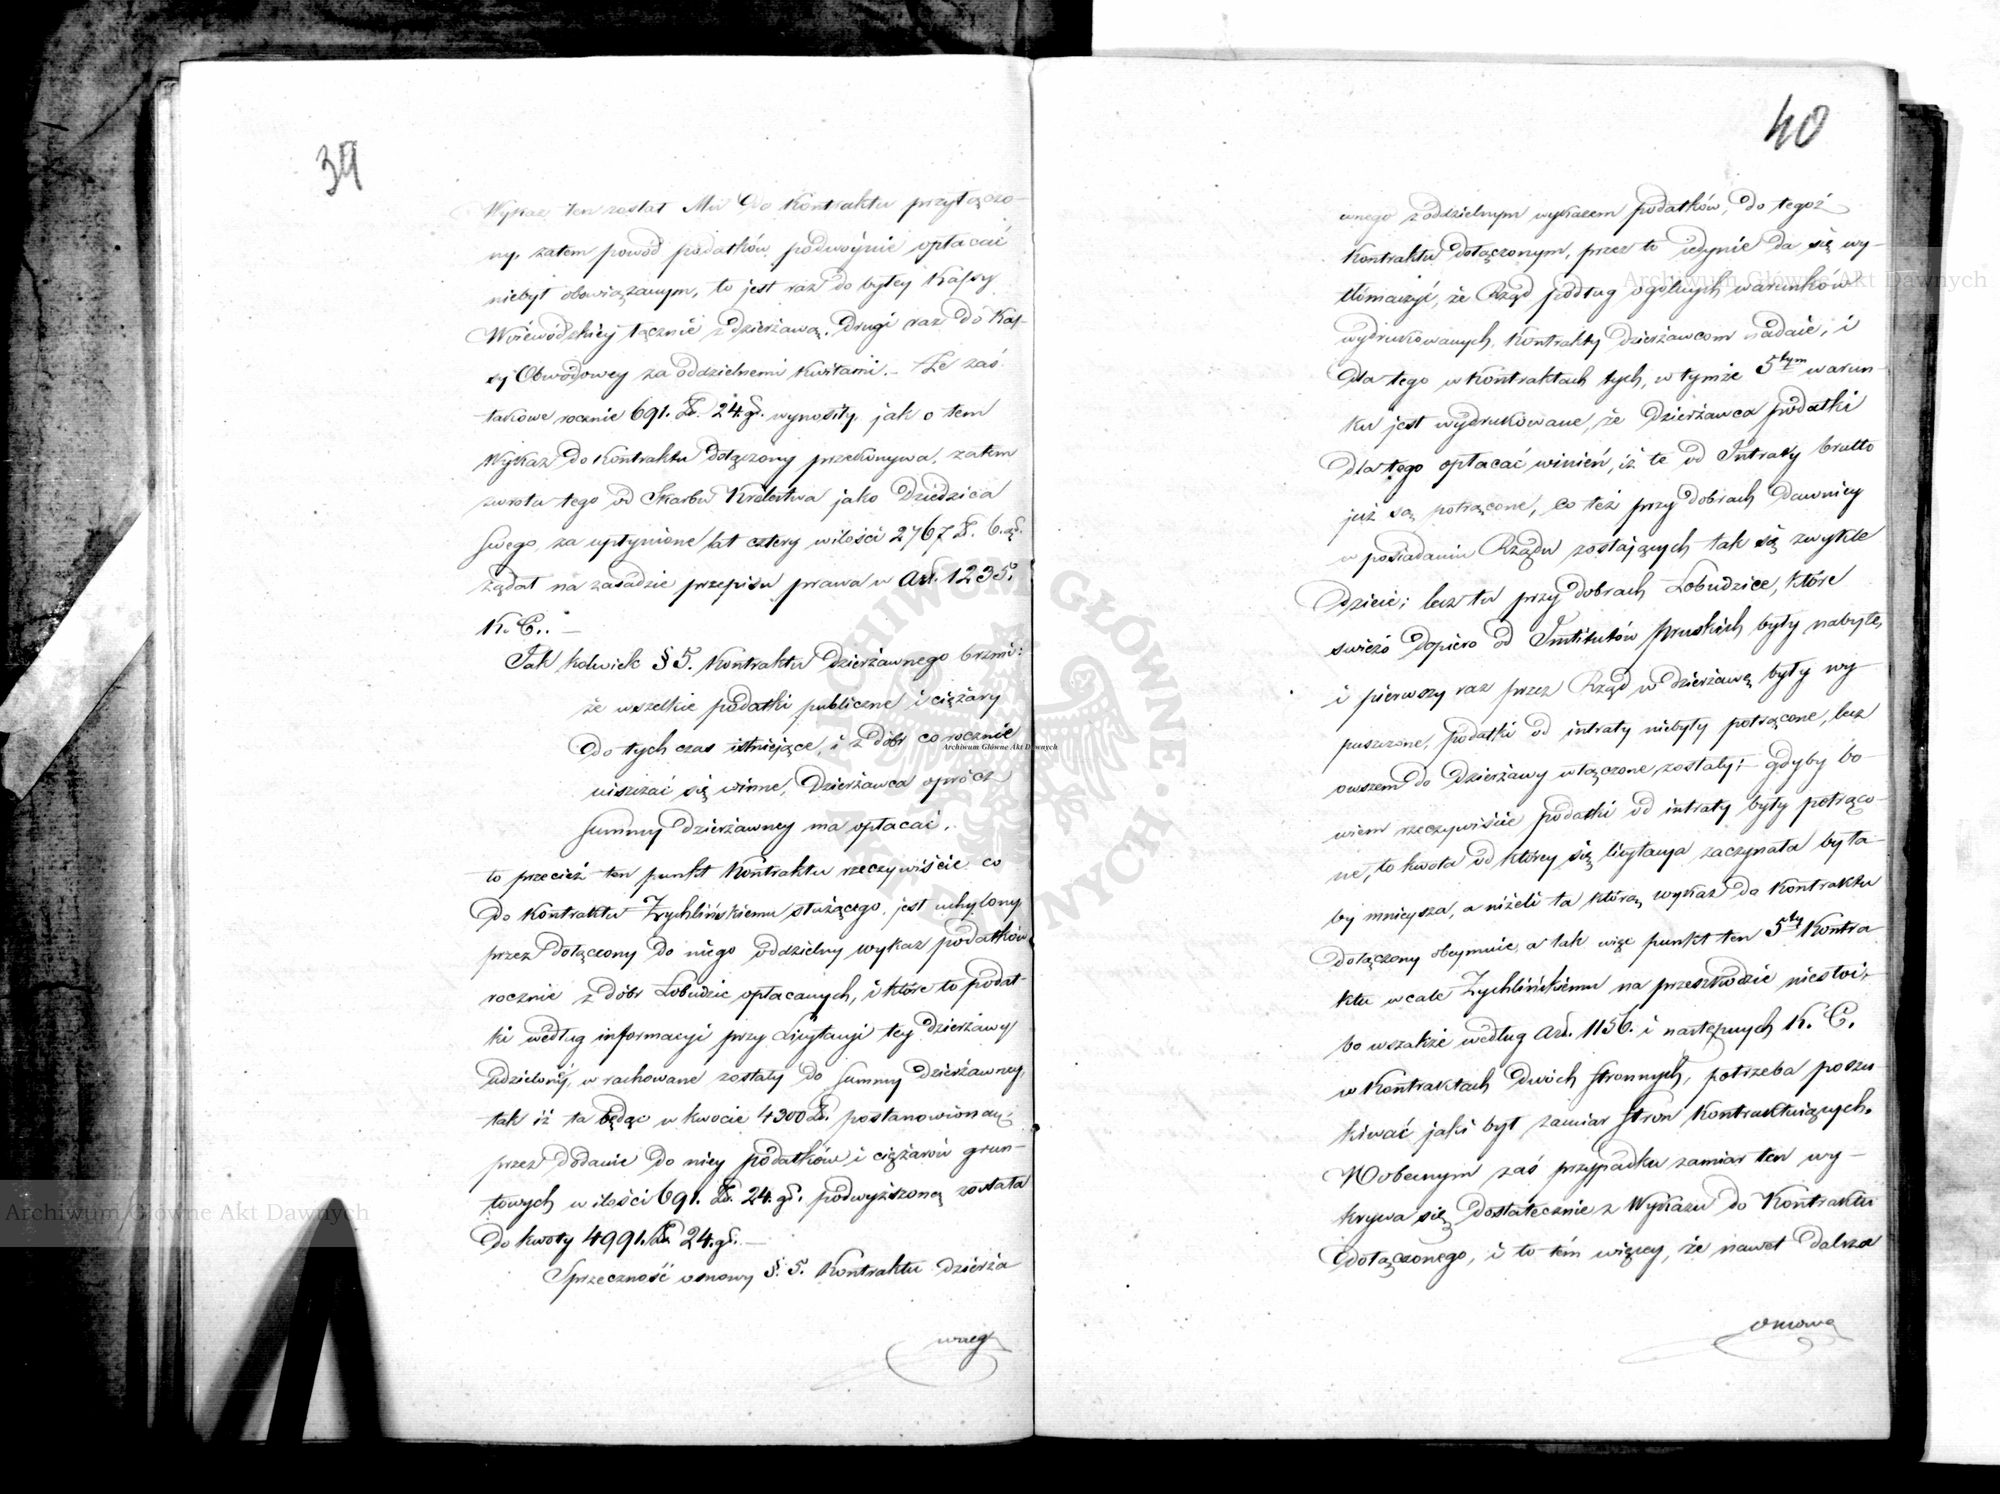 39
Wykaz ten został Mu do Kontraktu przyłączo-
ny, zatem powód podatków podwóynie opłacać
niebył obowiązanym, to jest raz do byłey Kassy
Woiewódzkiey łącznie z dzierżawą, drugi raz do Kas-
sy Obwodowey za oddzielnemi kwitami. – Że zaś
takowe rocznie 691. Zł. 24. gr. wynosiły, jak o tem
Wykaz do Kontraktu dołączony przekonywa, zatem
zwrotu tego od Skarbu Królestwa jako Dziedzica
swego, za upłynione lat cztery w ilości 2767 Zł. 6. gr.
żądał na zasadzie przepisu prawa w Art. 1235.
K. C. . —
Jak kolwiek § 5. Kontraktu Dzierżawnego brzmi:
że wszelkie podatki publiczne i ciężary
do tych czas istniejące, i z dóbr co rocznie
uiszczać się winne, Dzierżawca oprócz
summy dzierżawney ma opłacać,
to przecież ten punkt Kontraktu rzeczywiście co
do Kontraktu Zychlińskiemu służącego, jest uchylony
przez dołączony do niego oddzielny wykaz podatków
rocznie z dóbr Łobudzic opłacanych, i które to podat-
ki według informacyi przy Licytacyi tey dzierżawy
udzieloney, w rachowane zostały do summy dzierżawney,
tak iż ta będąc w kwocie 4300 Zł. postanowioną,
przez dodanie do niey podatków i ciężarów grun-
towych w ilości 691. Zł. 24. gr. podwyższoną została
do kwoty 4991. Zł. 24. gr. —
Sprzeczność osnowy §. 5. Kontraktu dzierża
wneg
40
wnego z oddzielnym wykazem podatków, do tegoż
Kontraktu dołączonym, przez to jedynie da się wy-
tłómaczyć, że Rząd podług ogólnych warunków
wydrukowanych, Kontrakty dzierżawcom nadaie, i
dla tego w Kontraktach tych, w tymże 5tym warun-
ku jest wydrukowane, że dzierżawca podatki
dla tego opłacać winien, iż te od Intraty brutto
już są potrącone, co też przy dobrach dawniey
w posiadaniu Rządu zostających tak się zwykle
dzieie; lecz tu przy dobrach Łobudzice, które
świeżo dopiero od Instytutów Pruskich były nabyte,
i pierwszy raz przez Rząd w dzierżawę były wy
puszczone, podatki od intraty niebyły potrącone, lecz
owszem do dzierżawy włączone zostały; – gdyby bo-
wiem rzeczywiście podatki od intraty były potrąco-
ne, to kwota od którey się licytacya zaczynała była-
by mnieysza, a niżeli ta którą wykaz do Kontraktu
dołączony obeymuie, a tak więc punkt ten 5ty Kontra
ktu wcale Zychlińskiemu na przeszkodzie niestoi,
bo wszakże według Art. 1156. i następnych K. C.
w Kontraktach dwóch stronnych, potrzeba poszu
kiwać jaki był zamiar stron Kontraktuiących.
W obecnym zaś przypadku zamiar ten wy-
krywa się dostatecznie z Wykazu do Kontraktu
dołączonego, i to tém więcey, że nawet dalsza
osnowa
Archiwum Główne Akt Dawnych
Archiwum Główne Akt Dawnych
Archiwum Główne Akt Dawnych
ARCHIWUM GŁÓWNE AKT DAWNYCH